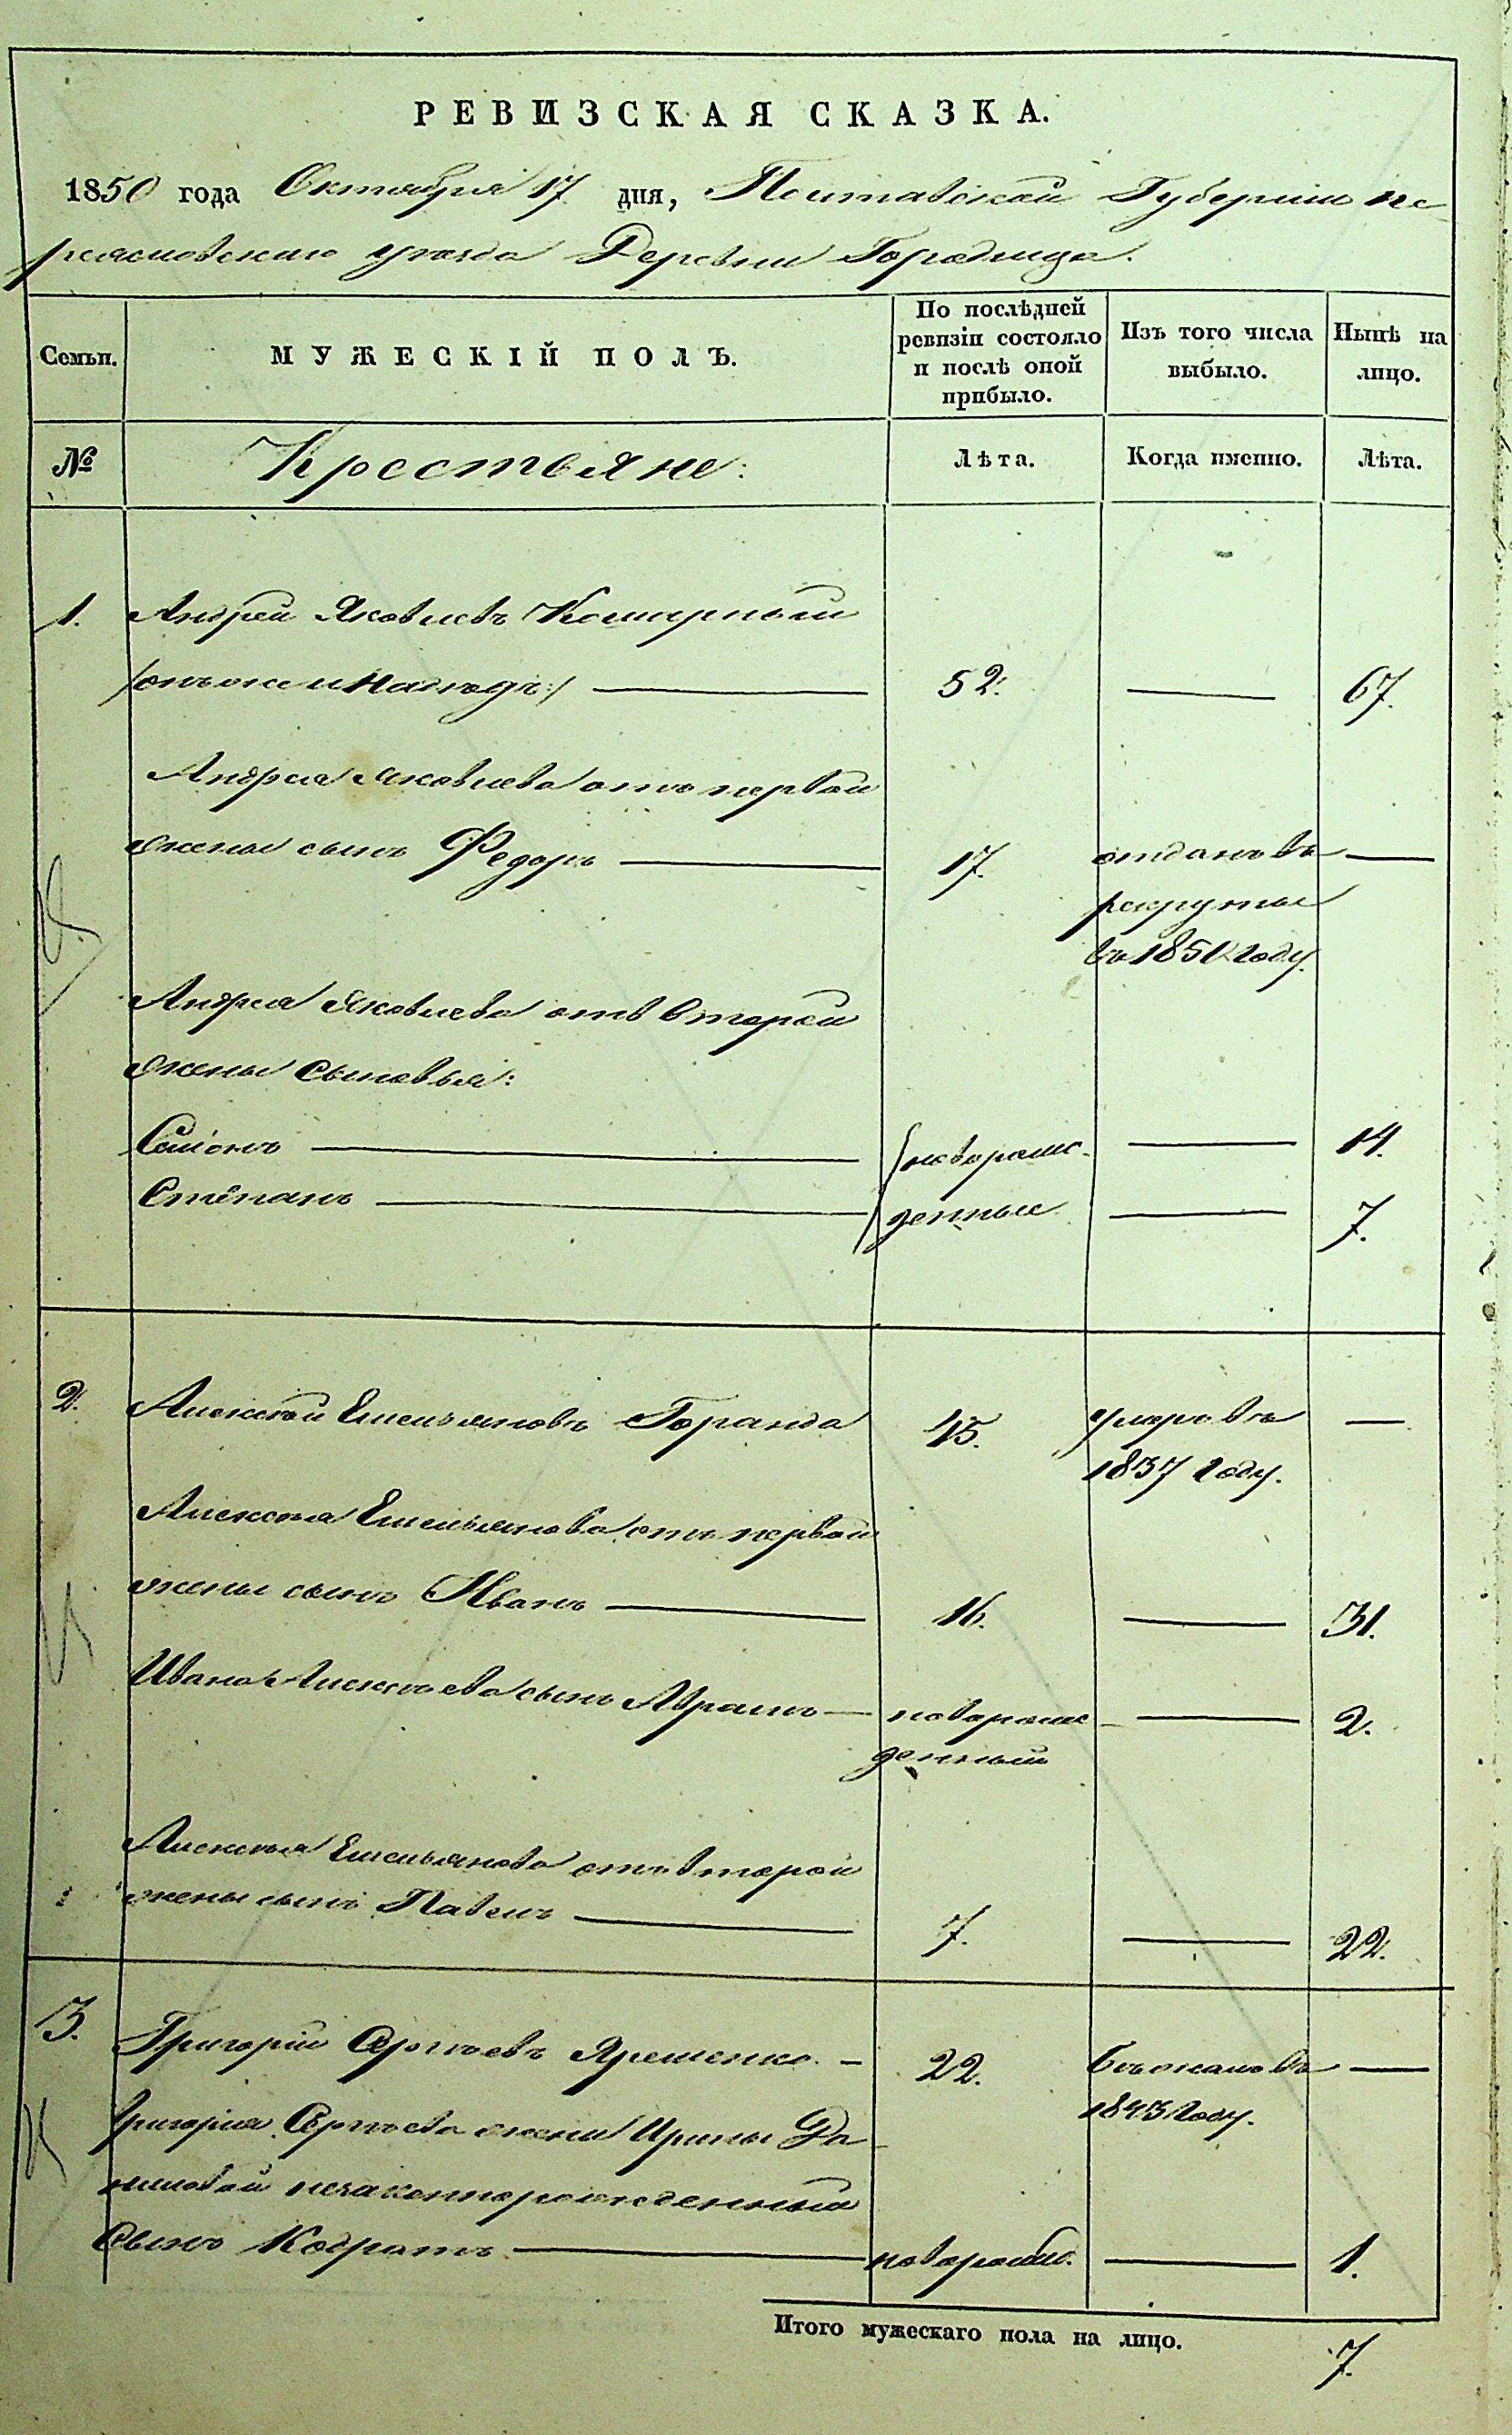 РЕВИЗСКАЯ СКАЗКА.
1850 года Октября 17 дня, Полтавской Губерніи Пе-
реясловского уезда Деревни Городища.
Семьи.
МУЖЕСКІЙ ПОЛЪ.
По послѣдней
ревизіи состояло
и послѣ оной
прибыло.
Изъ того числа
выбыло.
Нынѣ на
лицо.
№
Крестьяне:
Лѣта.
Когда именно.
Лѣта.
1. Андрей Яковлевъ Комарный
/онъ же 52. — 67.
Андрея Яковлева отъ первой
жены сынъ Федоръ — 17. отданъ въ —
рекруты
въ 1850 году.
Андрея Яковлева отъ второй
жены сыновья:
Симонъ — новорож- — 14.
Степанъ — денные — 7.
2. Алексѣй Емельяновъ Горанда 45. умеръ въ —
1837 году.
Алексѣя Емельянова отъ первой
жены сынъ Иванъ — 16. — 31.
Ивана Алексѣева сынъ Абрамъ — новорож- — 2.
денный
Алексѣя Емельянова отъ второй
жены сынъ Павелъ — 7. — 22.
3. Григорій Сергѣевъ Ярешенко. — 22. бѣжалъ въ —
1843 году.
Григорія Сергѣева жены Ирины Да-
ниловой незаконнорожденный
сынъ Кодратъ — новорожд. — 1.
Итого мужескаго пола на лицо. 7.